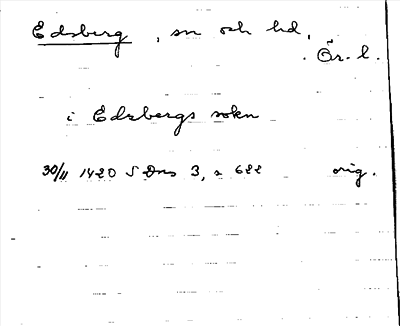 Edsberg, sn och hd,
Ör. l.
i Edzbergs sokn
30/11 1420 S Dns 3, s 622 orig.